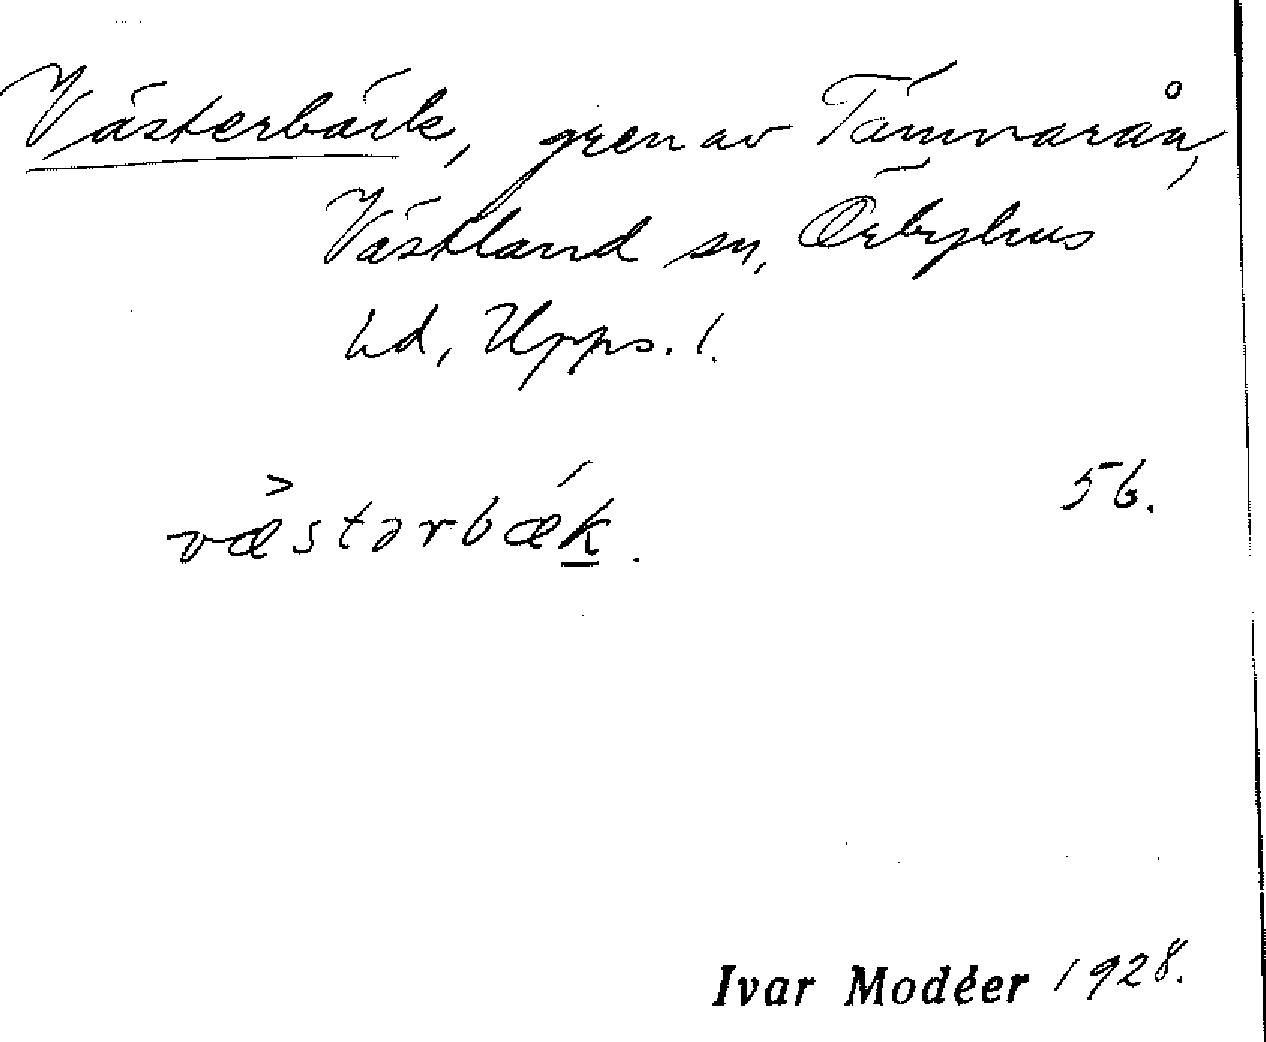 Västerbäck, gren av Tämnarån,
Västland sn, Örbyhus
hd, Upps. l.
væstərbæk. 56.
Ivar Modéer 1928.